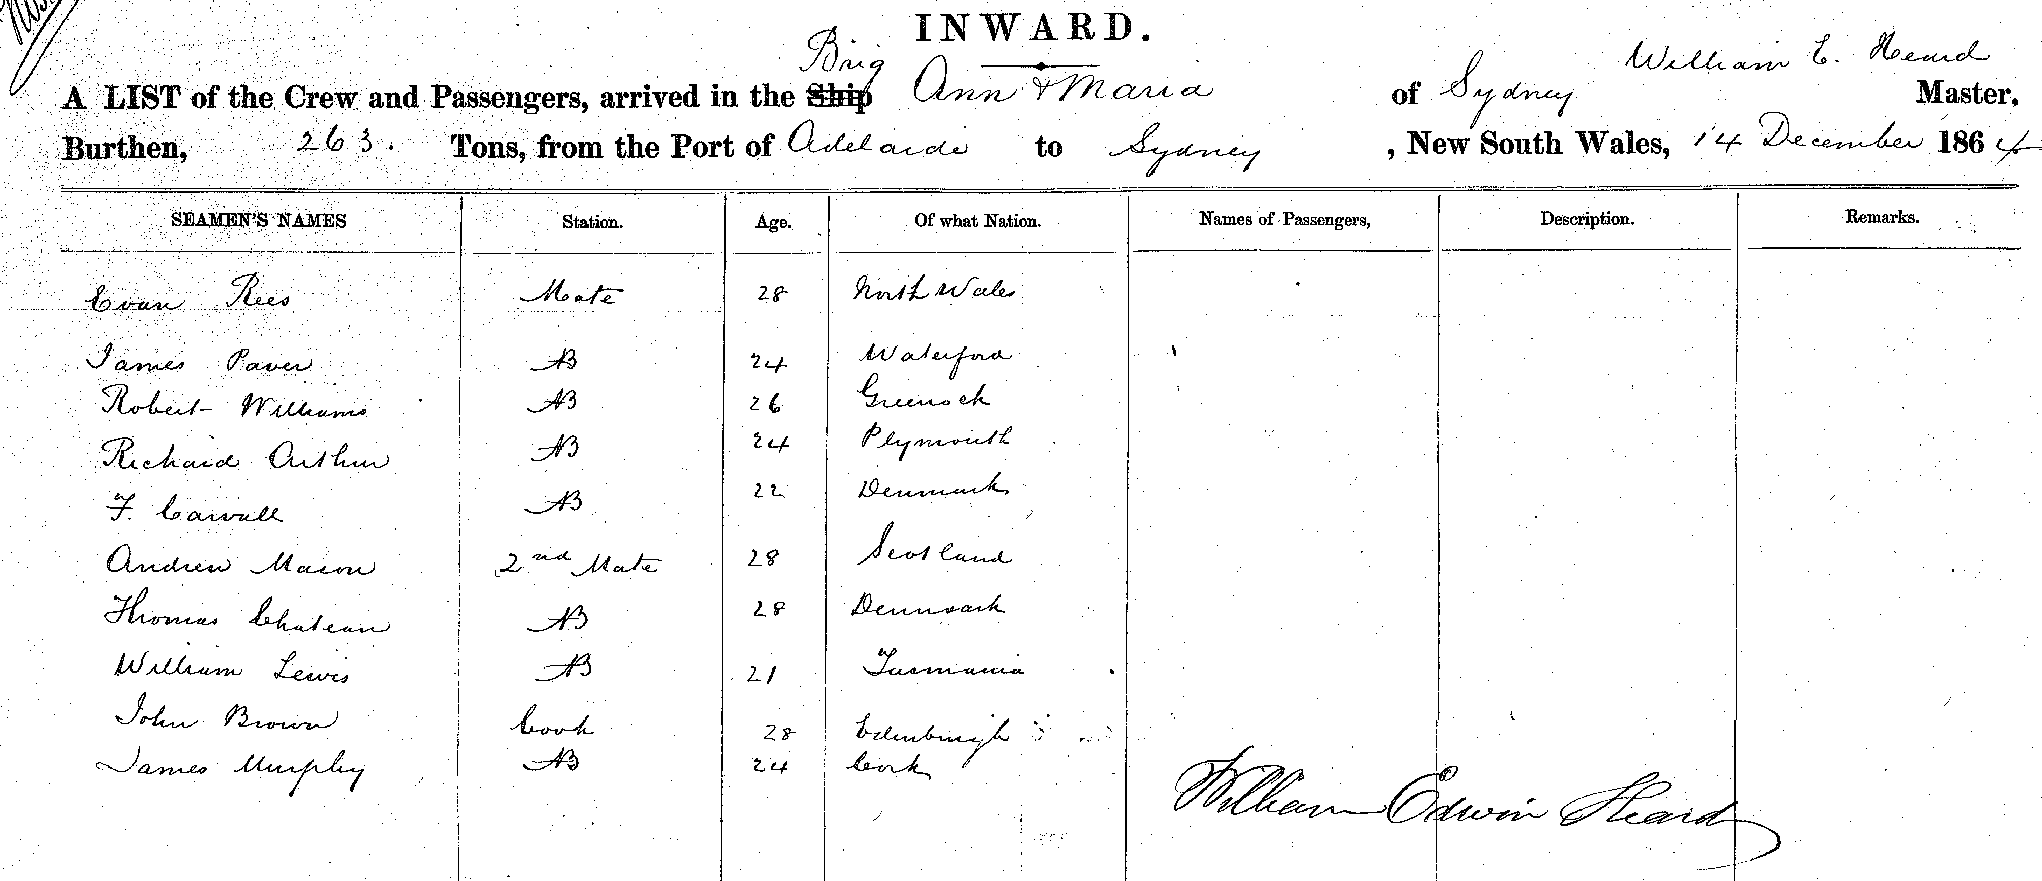 INWARD.
Brig William E. Heard
A LIST of the Crew and Passengers, arrived in the Ship Ann & Maria of Sydney Master,
Burthen, 263. Tons, from the Port of Adelaide to Sydney , New South Wales, 14 December 1864
SEAMEN'S NAMES Station. Age. Of what Nation. Names of Passengers, Description. Remarks.
Evan Rees Mate 28 North Wales
James Paver AB 24 Waterford
Robert Williams AB 26 Greenock
Richard Arthur AB 24 Plymouth
F. AB 22 Denmark
Andrew Mason 2nd Mate 28 Scotland
Thomas Chateau AB 28 Denmark
William Lewis AB 21 Tasmania
John Brown Cook 28 Edinburgh
James Murphy AB 24 Cork
William Edwin Heard